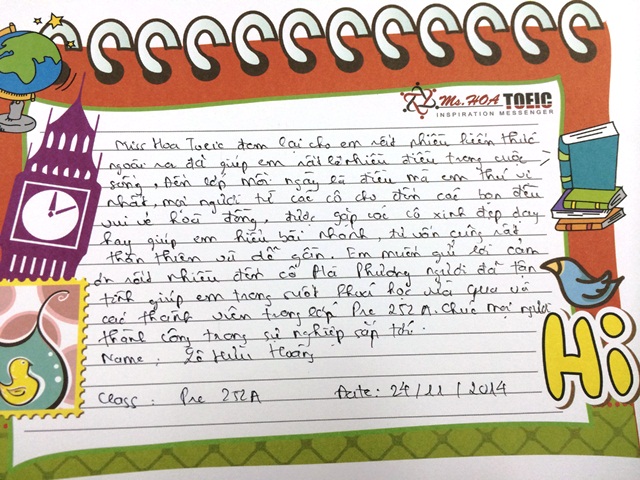 Ms.HOA TOEIC
INSPIRATION MESSENGER
Miss Hoa Toeic đem lại cho em rất nhiều kiến thức
ngoài ra đã giúp em rất nhiều điều trong cuộc
sống, Đến lớp mỗi ngày là điều mà em thú vị
nhất, mọi người từ các cô cho đến các bạn đều
vui vẻ hoà đồng, được gặp các cô xinh đẹp dạy
hay giúp em hiểu bài nhanh, tư vấn cũng rất
thân thiện và dễ gần. Em muốn gửi lời cảm
ơn rất nhiều đến cô Mai Phương người đã tận
tình giúp em trong suốt khoá học vừa qua và
các thành viên trong lớp Pre 252A. Chúc mọi người
thành công trong sự nghiệp sắp tới.
Name: Hữu Hoàng
Class: Pre 252A Date: 24/11/2014
Hi